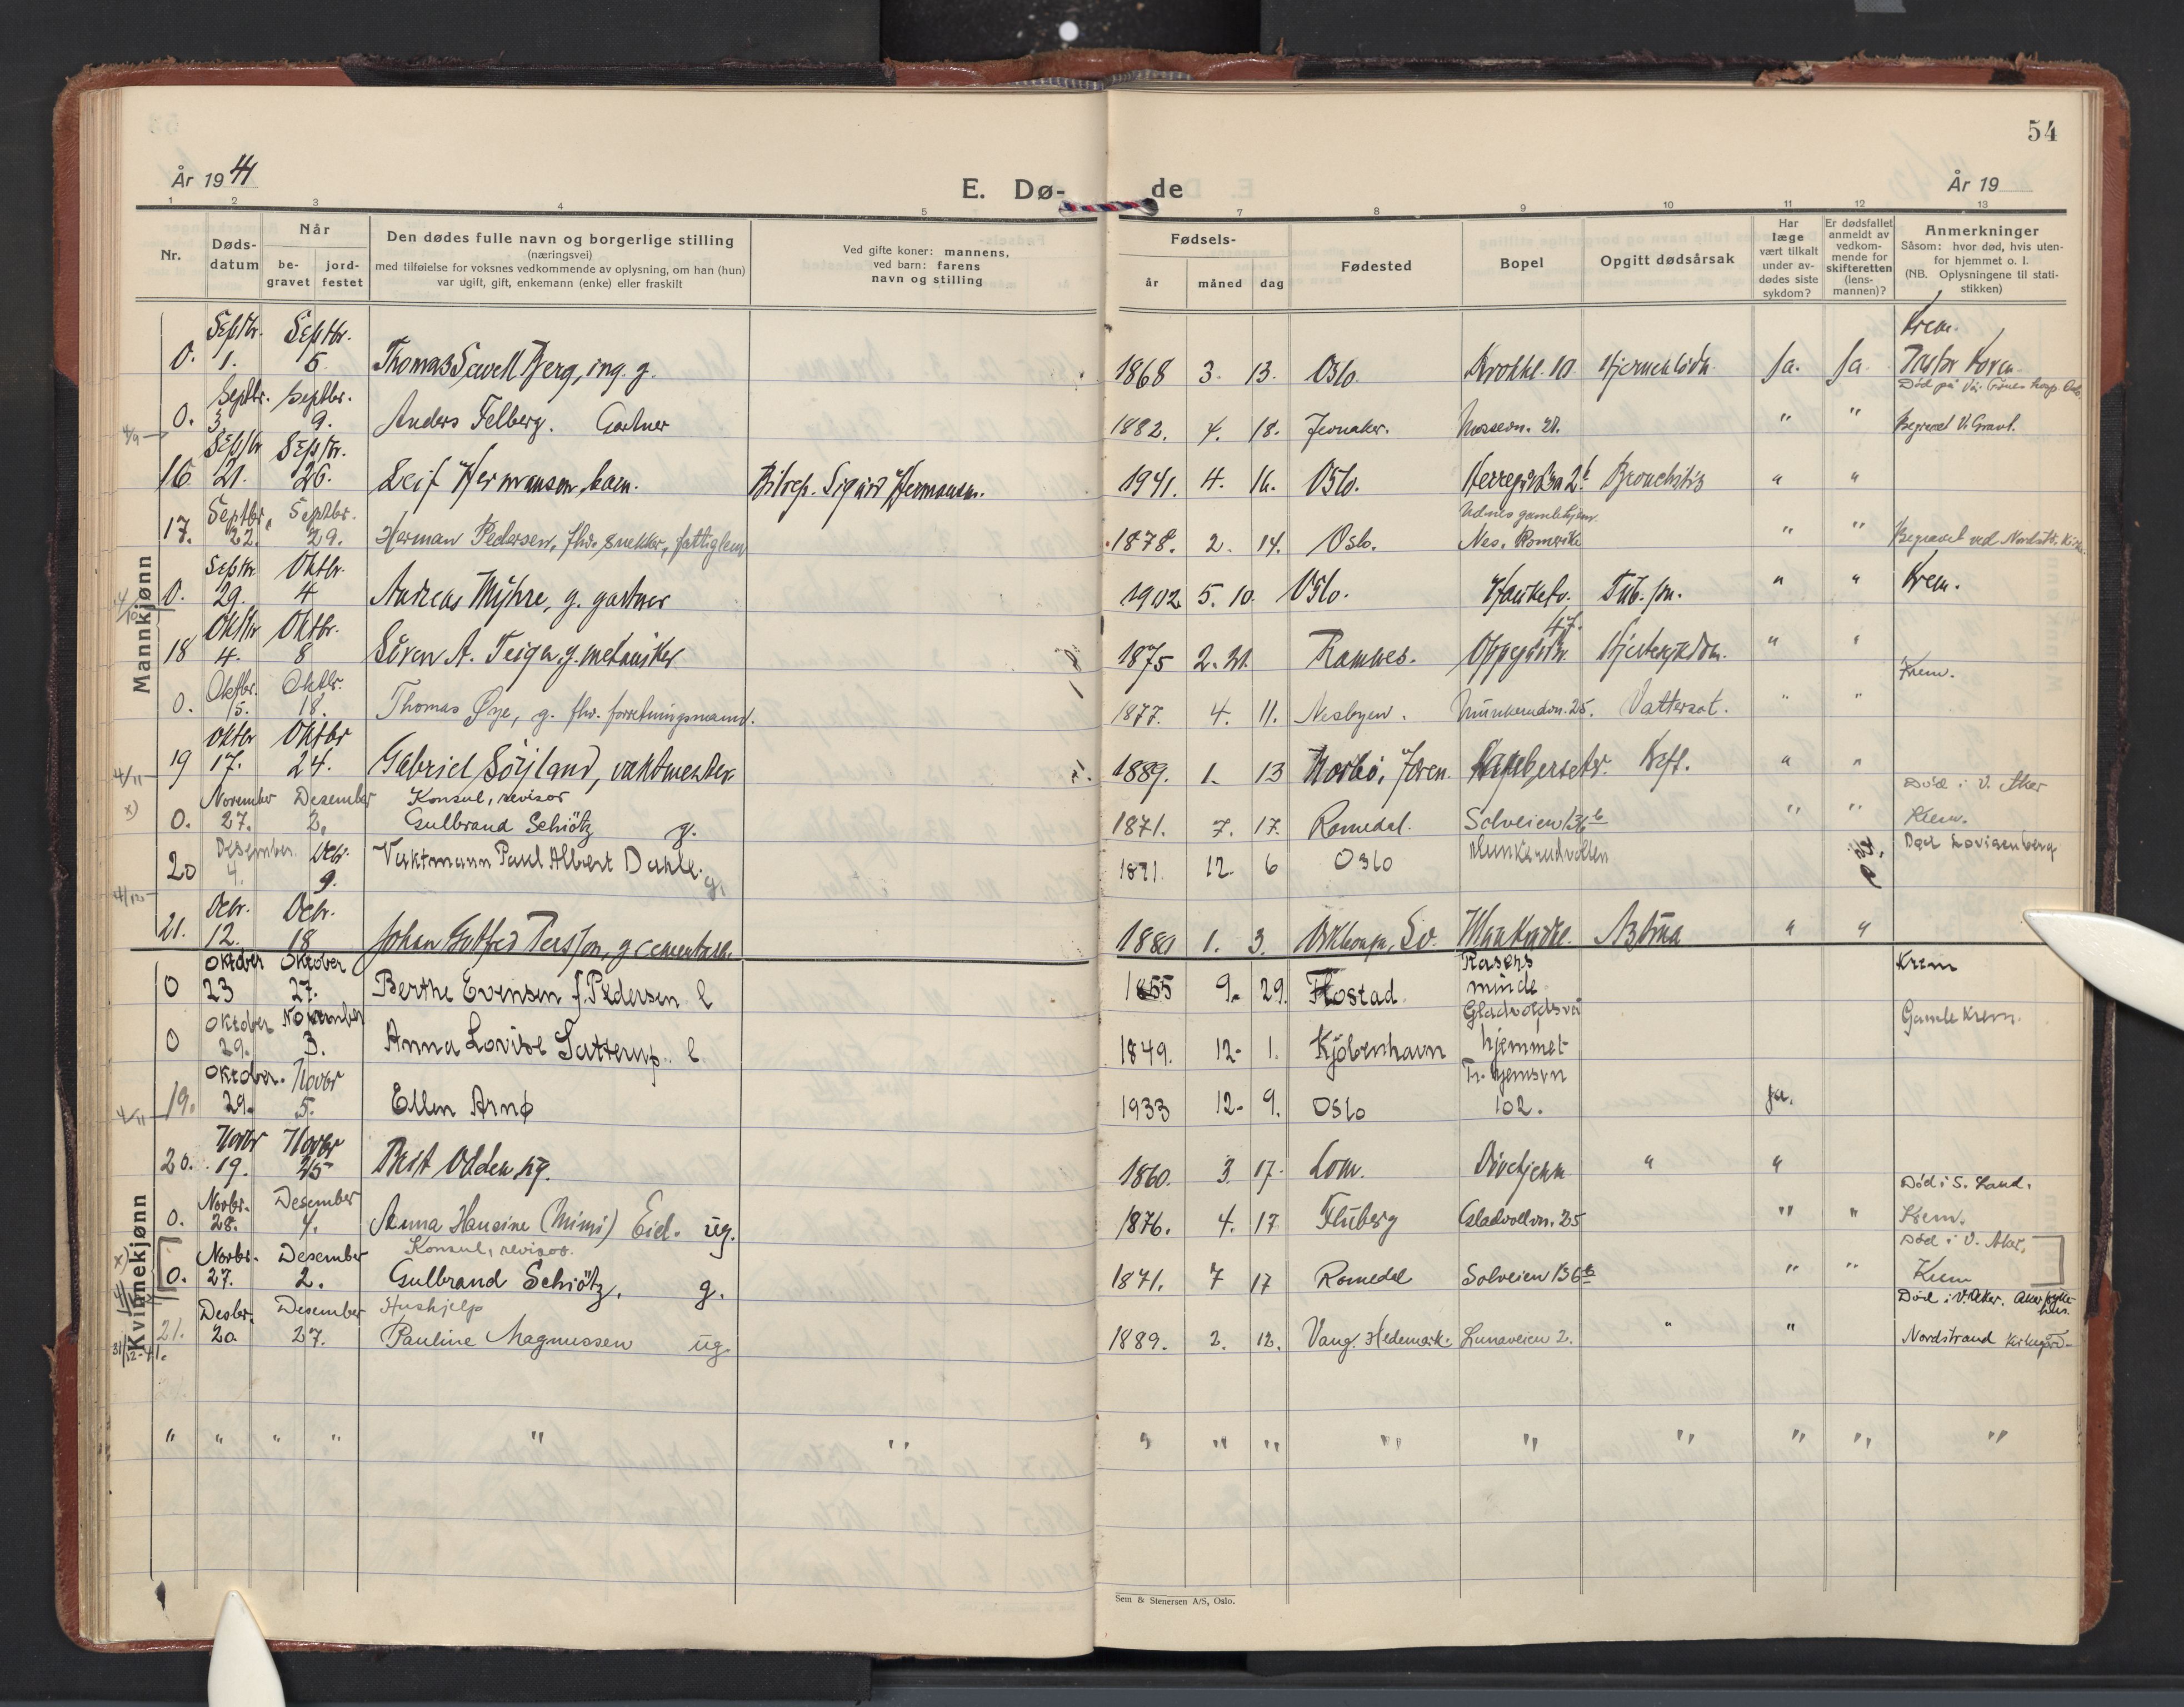 54
År 1941
E. Dø-
de
År 19
1 2 3 4 5 7 8 9 10 11 12 13
Nr.
Døds-
datum
Når
be-
gravet
jord-
festet
Den dødes fulle navn og borgerlige stilling
(næringsvei)
med tilføielse for voksnes vedkommende av oplysning, om han (hun)
var ugift, gift, enkemann (enke) eller fraskilt
Ved gifte koner: mannens,
ved barn: farens
navn og stilling
Fødsels-
år
måned
dag
Fødested
Bopel
Opgitt dødsårsak
Har
læge
vært tilkalt
under av-
dødes siste
sykdom?
Er dødsfallet
anmeldt av
vedkom-
mende for
skifteretten
(lens-
mannen)?
Anmerkninger
Såsom: hvor død, hvis uten-
for hjemmet o. l.
(NB. Oplysningene til stati-
stikken)
Mannkjønn
Septbr. Septbr. Krem.
0. 1. 5. Thomas Sewell Berg, ing. g. 1868 3. 13. Oslo. Ja. Ja.
Septbr. Septbr.
0. 3. 9. Anders Felberg. Gartner 1882. 4. 18. Jevnaker. Mossevn. 21. " " Begravet V. Gravl.
4/9
Septbr Septbr.
16 21. 26. Leif Hermansen, barn. Sigurd Hermansen. 1941. 4. 16. Oslo. Bronchitis " "
Septbr. Septbr. Udnes gamlehjem
17. 22. 29. Herman Pedersen, fhv. snekker, fattiglem 1878. 2. 14. Oslo. Nes. Romerike " " Begravet ved Nordstr. Kirke.
Septbr. Oktbr.
0. 29. 4 Andreas Myhre, g. gartner 1902 5. 10. Oslo. Hauketo. Tub. pu. " " Krem.
Oktbr Oktbr. 47.
18 4. 8 Søren A. Teigen, g. mekaniker 1875 2. 21. Ramnes. Hjertesykdom. " "
Oktbr. Oktbr. Krem.
0. 15. 18. Thomas Øye, g. fhv. forretningsmand. 1877. 4. 11. Nesbyen. Munkerudvn. 25. Vattersot. " "
Oktbr Oktbr
19 17. 24. Gabriel Söyland, vaktmester. 1889. 1. 13 Kreft. " "
4/11
x) November Desember Konsul, revisor Död i V. Aker
0. 27. 2. Gulbrand Schiötz g. 1871. 7. 17. Romedal. Solveien 136 b " " Krem.
Desember. Debr.
20 4. 9. Vaktmann Paul Albert Dahle. g. 1871. 12. 6 Oslo Munkerudvollen Död Lovisenberg
4/12
Debr. Debr.
21. 12. 18 Johan Gotfred Persson, g 1881 1. 3. Astma " "
Kvinnekjønn
Oktober Oktober Krem
0 23 27. Berthe Evensen f. Pedersen e 1855 9. 29. Flostad. Rasens minde
Oktober November Gamle Krem.
0 29. 3. Anna Lovise Satterup. e 1849. 12. 1. Kjöbenhavn hjemmet
Oktober. Novbr
19. 29. 5. Ellen Arnø 1933 12. 9. Oslo 102. Ja.
4/11
Novbr Novbr
20. 19. 25 Brit Odden ug. 1860. 3 17. Lom. Dövehjem " "
Novbr. Desember Död i S. Land.
0. 28. 4. Anna Hansine (Mimi) Eid. ug. 1876. 4. 17 Fluberg Gladvollvn. 25 " " Krem.
x) Novbr. Desember Konsul, revisor. Död i V. Aker,
0. 27. 2. Gulbrand Schiötz. g. 1871. 7 17 Romedal Solveien 136 b " " Krem
Desbr. Desember Hushjelp Död i V. Aker. Aker sykehus.
21. 20 27. Pauline Magnussen ug. 1889. 2. 12. Vang. Hedemark. Lunaveien 2. " " Nordstrand Kirkegård
31/12-41.
" " " " " " " " " " " " " " "
Sem & Stenersen A/S, Oslo.